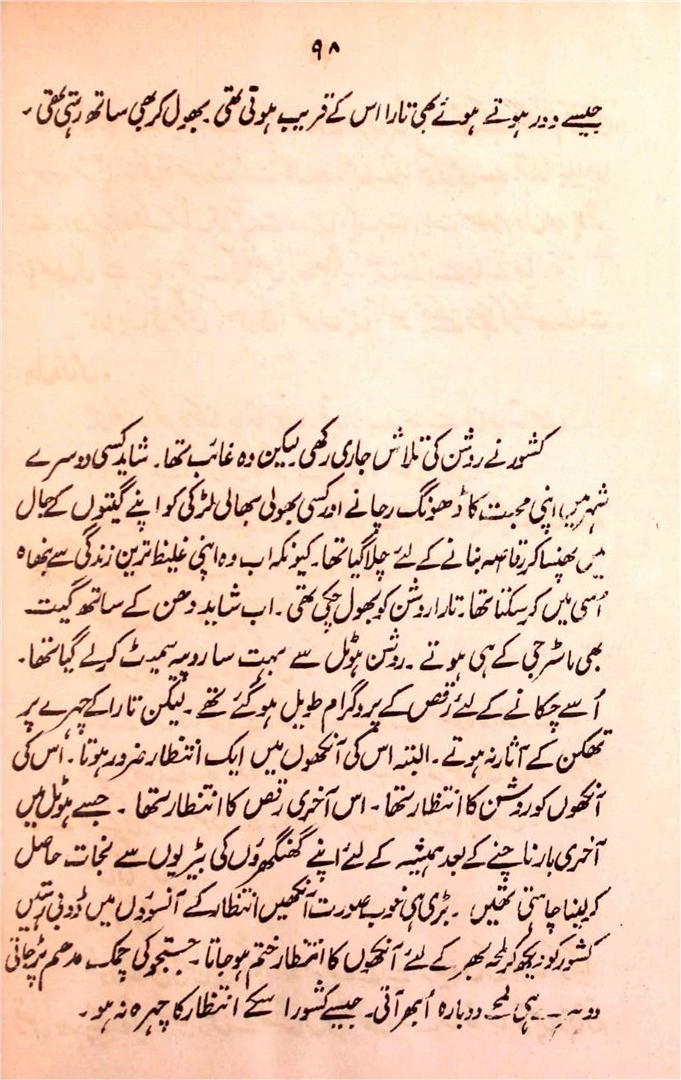 ۹۸
جیسے دور ہوتے ہوئے بھی تارا اس کے قریب ہوتی تھی۔ بھول کر بھی ساتھ رہتی تھی۔
کشور نے روشن کی تلاش جاری رکھی۔ لیکن وہ غائب تھا۔ شاید کسی دوسرے
شہر میں اپنی محبت کا ڈھونگ رچانے اور کسی بھولی بھالی لڑکی کو اپنے گیتوں کے جال
میں پھنسا کر رقاصہ بنانے کے لئے چلا گیا تھا۔ کیونکہ اب وہ اپنی غلیظ ترین زندگی سے نبھاہ
اُسی میں کر سکتا تھا۔ تارا روشن کو بھول چکی تھی۔ اب شاید دھن کے ساتھ گیت
بھی ماسٹر جی کے ہی ہوتے۔ روشن ہوٹل سے بہت سا روپیہ سمیٹ کر لے گیا تھا۔
اُسے چکانے کے لئے رقص کے پروگرام طویل ہو گئے تھے۔ لیکن تارا کے چہرے پر
تھکن کے آثار نہ ہوتے۔ البتہ اس کی آنکھوں میں ایک انتظار ضرور ہوتا۔ اس کی
آنکھوں کو روشن کا انتظار تھا۔ اس آخری رقص کا انتظار تھا۔ جسے ہوٹل میں
آخری بار ناچنے کے بعد ہمیشہ کے لئے اپنے گھنگھروؤں کی بیڑیوں سے نجات حاصل
کر لینا چاہتی تھیں۔ بڑی ہی خوب صورت آنکھیں انتظار کے آنسوؤں میں ڈوبی رہتیں
کشور کو دیکھ کر لمحہ بھر کے لئے آنکھوں کا انتظار ختم ہو جاتا۔ جستجو کی چمک مدھم پڑ جاتی
دوسرے ہی لمحے دوبارہ اُبھر آتی۔ جیسے کشور اسکے انتظار کا چہرہ نہ ہو۔